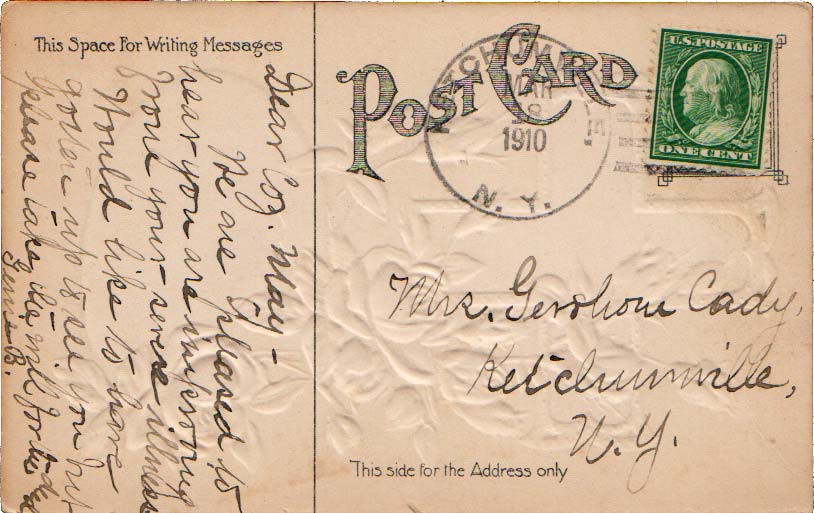 This Space For Writing Messages
Dear Coz. May –
We are pleased to
hear you are improving
from your severe illness
Would like to have
gotten up to see you but
please take the will for the deed
Gene B.
POST CARD
MAR
1910
N. Y.
U.S. POSTAGE
ONE CENT
Mrs. Gershom Cady,
Ketchumville,
N. Y.
This side for the Address only